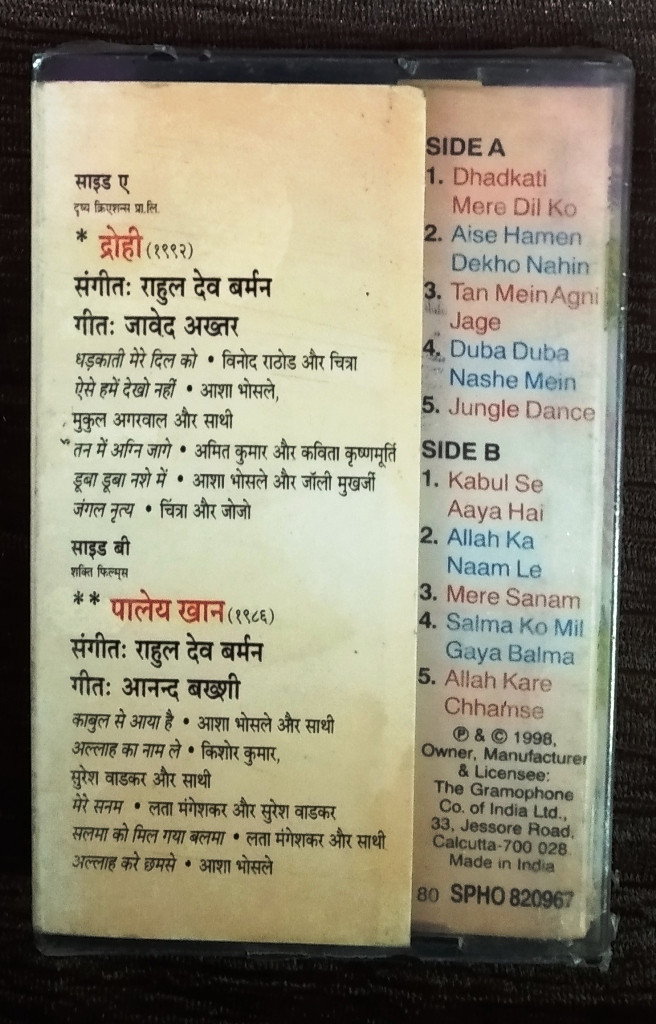 साइड ए
दृष्य क्रिएशन्स प्रा.लि.
* द्रोही (१९९२)
संगीतः राहुल देव बर्मन
गीतः जावेद अख्तर
धड़काती मेरे दिल को • विनोद राठोड और चित्रा
ऐसे हमें देखो नहीं • आशा भोसले,
मुकुल अगरवाल और साथी
तन में अग्नि जागे • अमित कुमार और कविता कृष्णमूर्ति
डूबा डूबा नशे में • आशा भोसले और जॉली मुखर्जी
जंगल नृत्य • चित्रा और जोजो
साइड बी
शक्ति फिल्म्स
** पालेय खान (१९८६)
संगीतः राहुल देव बर्मन
गीतः आनन्द बख्शी
काबुल से आया है • आशा भोसले और साथी
अल्लाह का नाम ले • किशोर कुमार,
सुरेश वाडकर और साथी
मेरे सनम • लता मंगेशकर और सुरेश वाडकर
सलमा को मिल गया बलमा • लता मंगेशकर और साथी
अल्लाह करे छमसे • आशा भोसले
SIDE A
1. Dhadkati
Mere Dil Ko
2. Aise Hamen
Dekho Nahin
3. Tan Mein Agni
Jage
4. Duba Duba
Nashe Mein
5. Jungle Dance
SIDE B
1. Kabul Se
Aaya Hai
2. Allah Ka
Naam Le
3. Mere Sanam
4. Salma Ko Mil
Gaya Balma
5. Allah Kare
Chhamse
℗ & © 1998,
Owner, Manufacturer
& Licensee:
The Gramophone
Co. of India Ltd.,
33, Jessore Road,
Calcutta-700 028.
Made in India
80 SPHO 820967